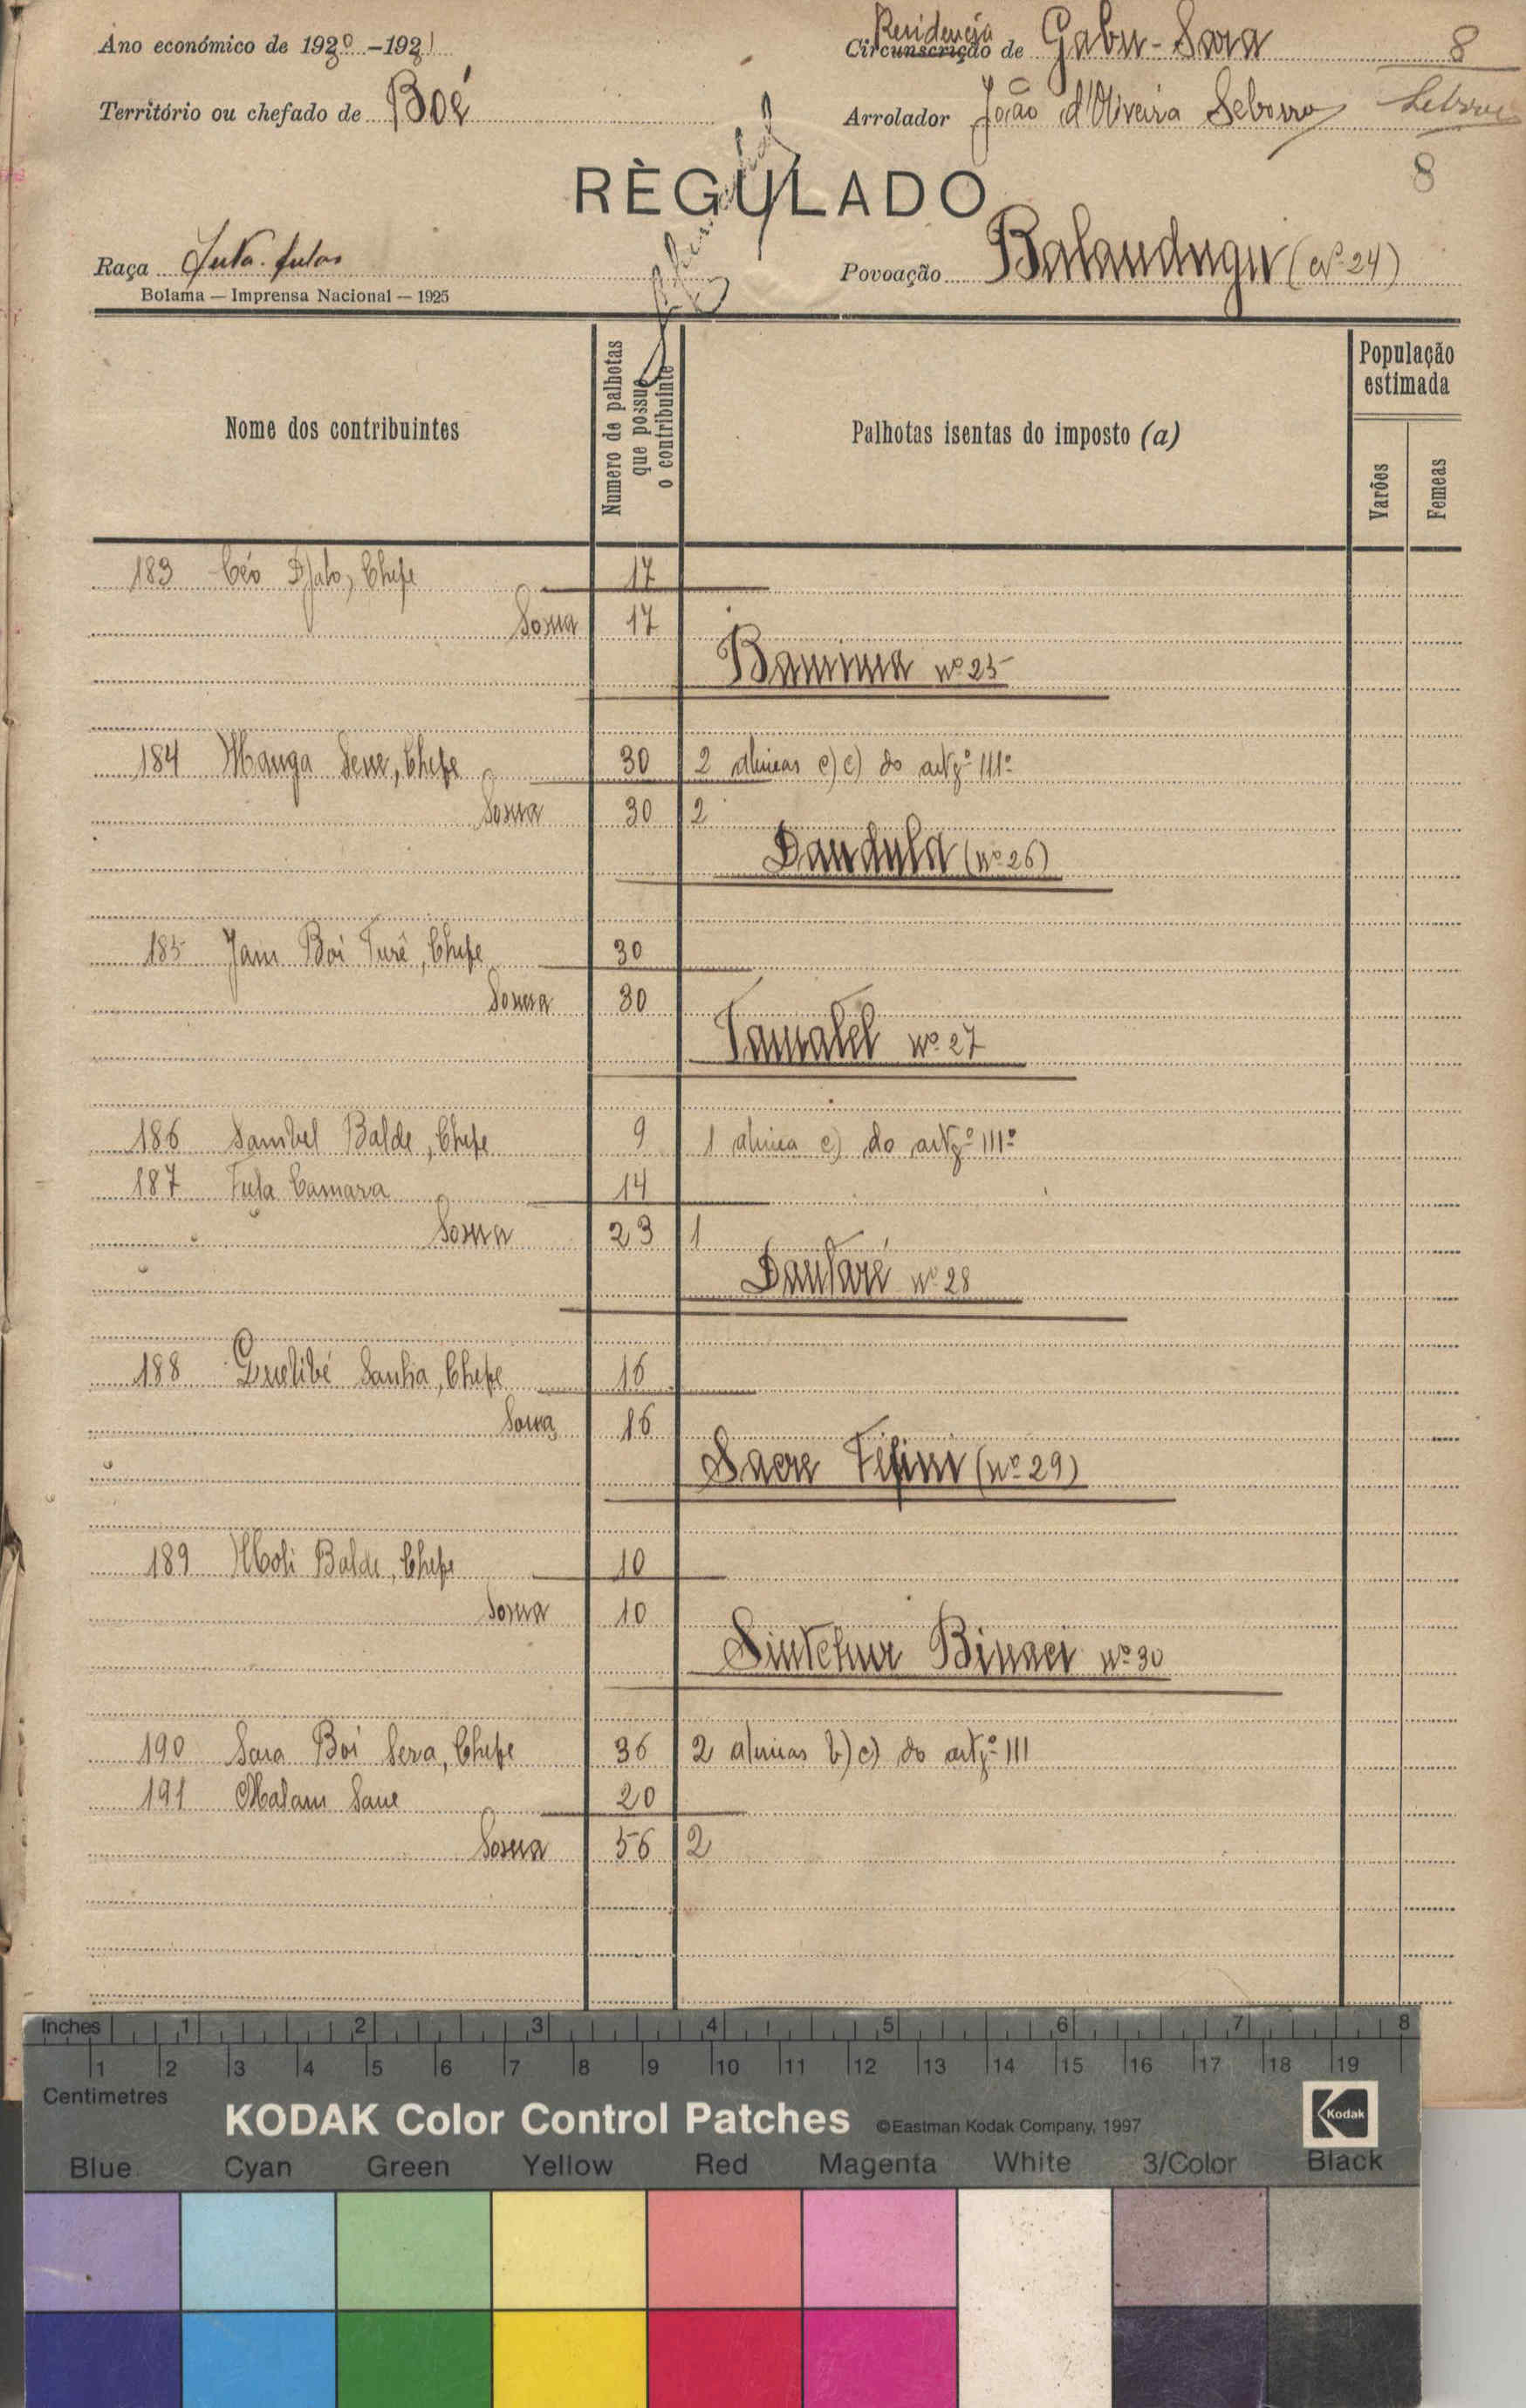 Ano económico de 1930-1931
Residencia
Circunscrição de Gabu-Sara
8
Território ou chefado de Boé
Arrolador João d'Oliveira Seborro
8
RÈGULADO
Raça Futa-fulas
Povoação Balandugu (nº 24)
Bolama — Imprensa Nacional — 1925
Nome dos contribuintes
Numero de palhotas que possue o contribuinte
Palhotas isentas do imposto (a)
População estimada
Varões
Femeas
183 Céo Djalo, Chefe 17
Soma 17
nº 25
184 Manga Sene, Chefe 30 2 alineas e) e) do artgº 111º
Soma 30 2
Dandula (nº 26)
185 Jam Boi Turé, Chefe 30
Soma 30
Tamatel nº 27
186 Sambel Balde, Chefe 9 1 alinea e) do artgº 111º
187 Fula Camara 14
Soma 23 1
Dantaré nº 28
188 Quelibé Sanha, Chefe 16
Soma 16
Sacre Fefini (nº 29)
189 Moli Balde, Chefe 10
Soma 10
Sintchur Binaci nº 30
190 Sara Boi Sera, Chefe 36 2 alineas b) e) do artgº 111
191 Malam Sane 20
Soma 56 2
Inches 1 2 3 4 5 6 7 8
1 2 3 4 5 6 7 8 9 10 11 12 13 14 15 16 17 18 19
Centimetres
KODAK Color Control Patches ©Eastman Kodak Company, 1997 Kodak
Blue Cyan Green Yellow Red Magenta White 3/Color Black